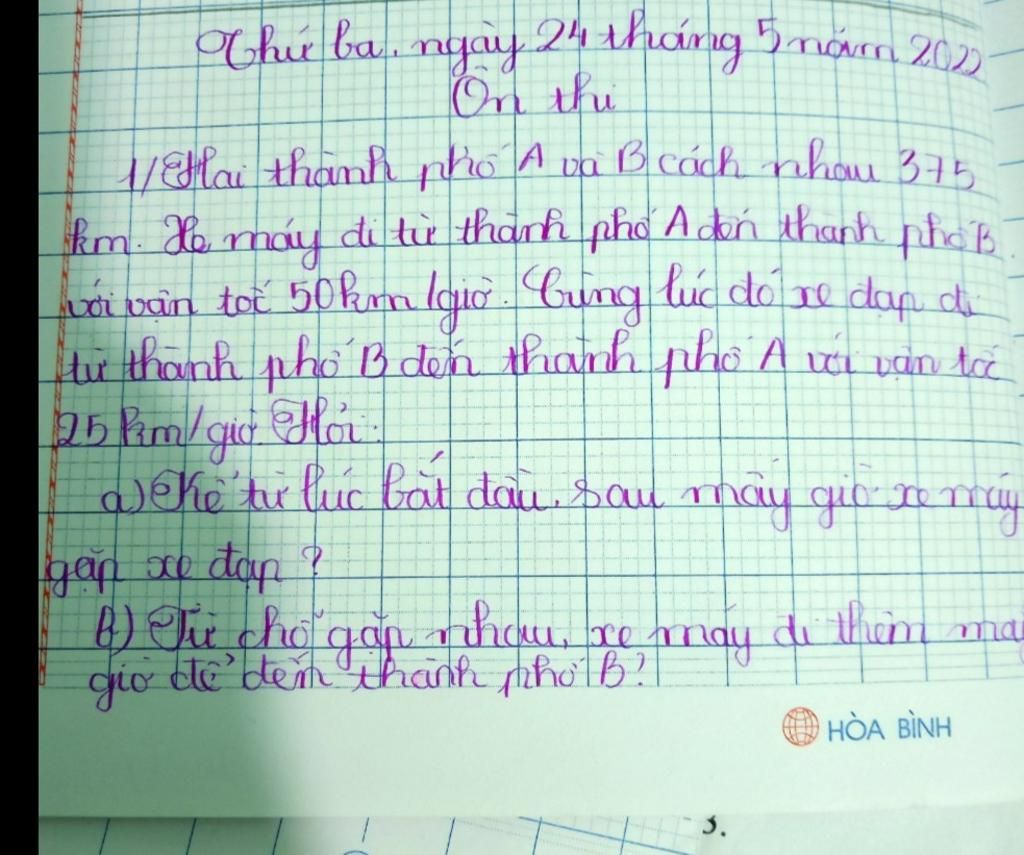 Thứ ba, ngày 24 tháng 5 năm 2022
Ôn thi
1/ Hai thành phố A và B cách nhau 375
km. Xe máy đi từ thành phố A đến thành phố B
với vận tốc 50km/giờ. Cùng lúc đó xe đạp đi
từ thành phố B đến thành phố A với vận tốc
25 km/giờ Hỏi:
a) Kể từ lúc bắt đầu, sau mấy giờ xe máy
gặp xe đạp?
b) Từ chỗ gặp nhau, xe máy đi thêm mấy
giờ để đến thành phố B?
HÒA BÌNH
3.